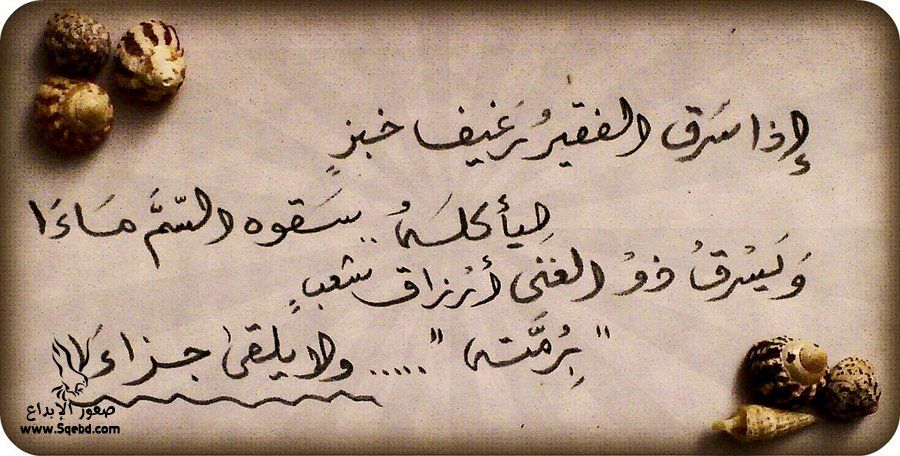 إذا سَرَق الفقيرُ رَغيفا خبزٍ
ليأكلهُ .. سَقوه السّمَّ مَاءَا
وَيَسْرقُ ذوُ الغنى أرْزاق شعبٍ
"بِرُمَّته" ..... ولا يلقى جزاءَا
صقور الإبداع
www.Sqebd.com